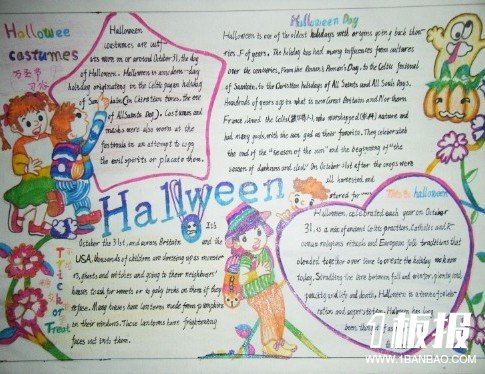 Hallowee
costumes
万圣节
Halloween
costumes are outf-
its worn on or around October 31, the day
of Halloween. Halloween is a modern-day
holiday originating in the Celtic pagan holiday
of Sam
(in Christian times, the eve
of All Saints Day). Costumes and
masks were also worn at the
festivals in an attempt to copy
the evil spirits or placate them.
Halloween Day
Halloween is one of the oldest holidays with origins going back thou-
ries of years. The holiday has had many influences from cultures
over the centuries. From the Roman's Pomona's Day, to the Celtic festival
of Samhain, to the Christian holidays of All Saints and All Souls Days.
Hundreds of years ago in what is now Great Britain and Northern
France lived the Celts
who worshipped
nature and
had many gods, with the sun god as their favorite. They celebrated
the end of the "season of the sun" and the beginning of "the
season of darkness and cold" On October 31st after the crops were
all harvested and
stored for
Halween
Its
October the 31st, and across Britain and the
USA, thousands of children are dressing up as monste-
rs, ghosts and witches and going to their neighbours'
houses to ask for sweets or to play tricks on them if they
refuse. Many houses have lanterns made from pumpkins
in their windows. These lanterns have frightening
faces cut into them.
Trick
or
Treat
This is halloween
Halloween, celebrated each year on October
31, is a mix of ancient Celtic practices, Catholic and R
oman religious rituals and European folk traditions that
blended together over time to create the holiday we know
today. Straddling the line between fall and winter, plenty and
paucity and life and death, Halloween is a time of celeb-
ration and superstition. Halloween has long
been thought of as
1板报
WWW.1BANBAO.COM